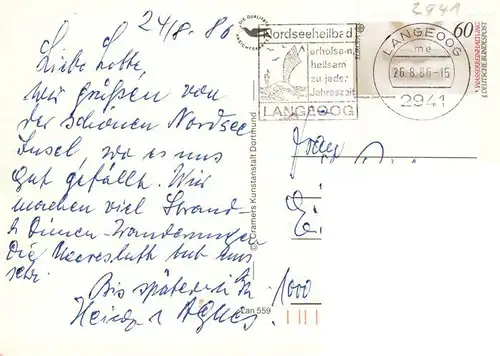 24/8.86
Liebe Lotte,
wir grüßen von
der schönen Nordsee
Insel, wo es uns
gut gefällt. Wir
machen viel Strand-
+ Dünen-Wanderungen
Die Meeresluft tut uns
sehr
Bis später
Heinz + Agnes.
© Cramers Kunstanstalt Dortmund
Lan 559
Nordseeheilbad
erholsam,
heilsam
zu jeder
Jahreszeit
LANGEOOG
2941
60
WASSERREINHALTUNG
DEUTSCHE BUNDESPOST
LANGEOOG
me
26.8.86-15
2941
1000